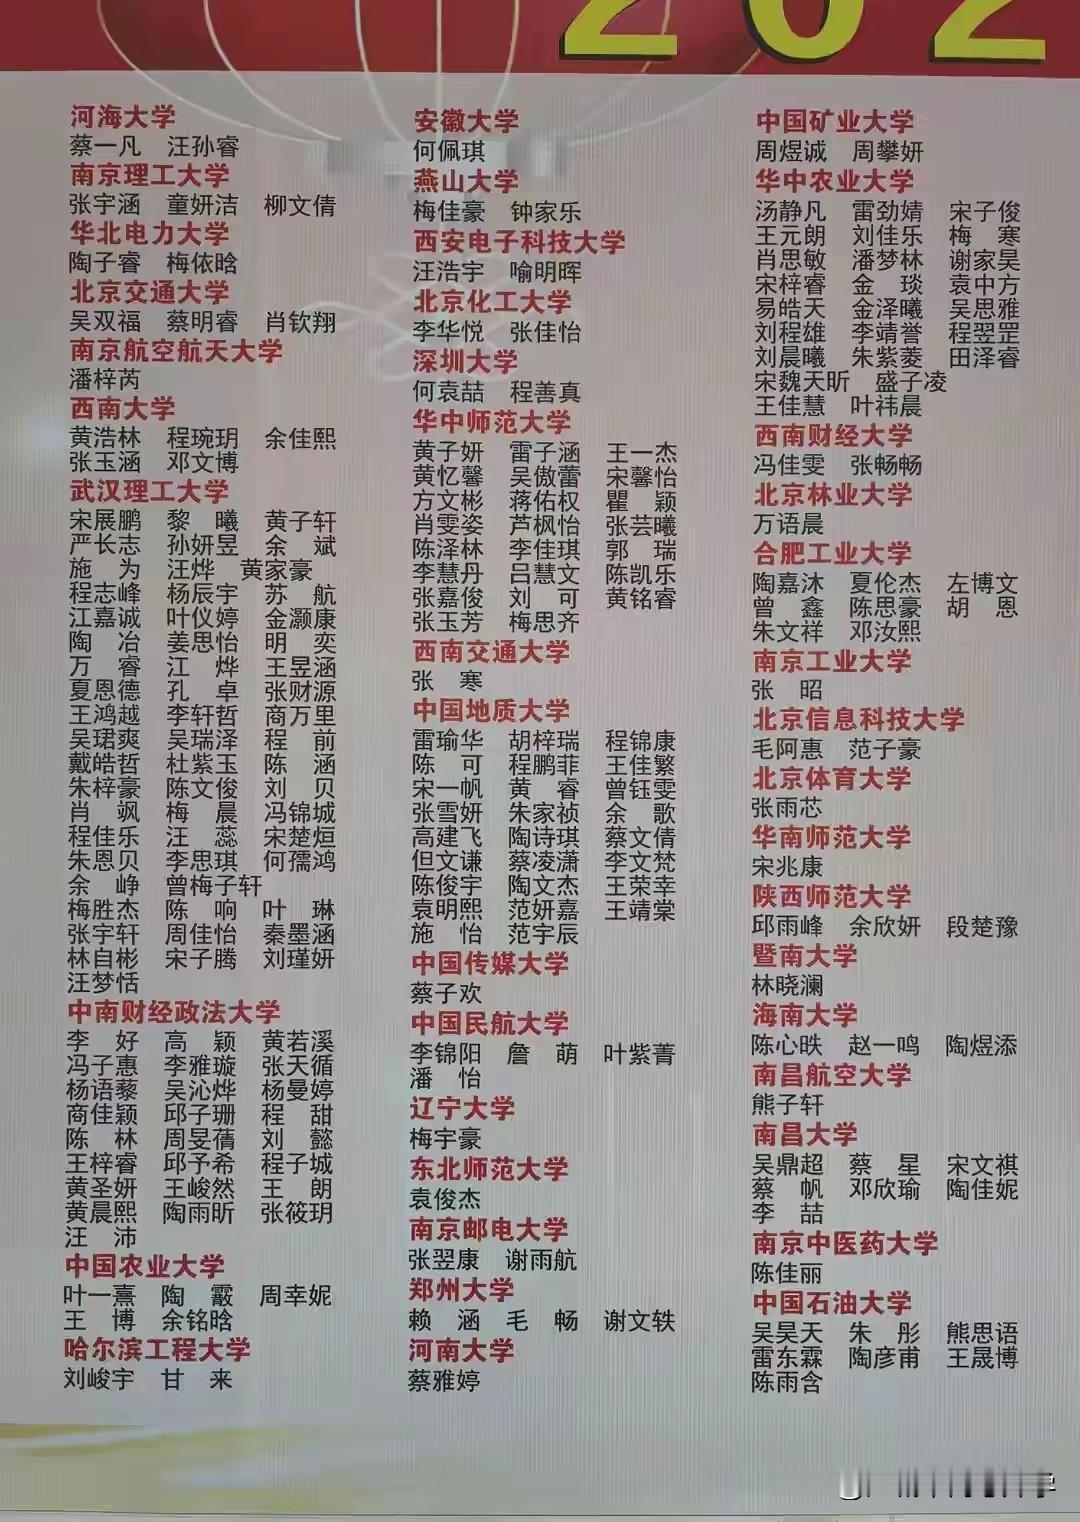 202
河海大学
蔡一凡 汪孙睿
南京理工大学
张宇涵 童妍洁 柳文倩
华北电力大学
陶子睿 梅依晗
北京交通大学
吴双福 蔡明睿 肖钦翔
南京航空航天大学
潘梓芮
西南大学
黄浩林 程琬玥 余佳熙
张玉涵 邓文博
武汉理工大学
宋展鹏 黎 曦 黄子轩
严长志 孙妍昱 余 斌
施 为 汪烨 黄家豪
程志峰 杨辰宇 苏 航
江嘉诚 叶仪婷 金灏康
陶 冶 姜思怡 明 奕
万 睿 江 烨 王昱涵
夏恩德 孔 卓 张财源
王鸿越 李轩哲 商万里
吴珺爽 吴瑞泽 程 前
戴皓哲 杜紫玉 陈 涵
朱梓豪 陈文俊 刘 贝
肖 飒 梅 晨 冯锦城
程佳乐 汪 蕊 宋楚烜
朱恩贝 李思琪 何孺鸿
余 峥 曾梅子轩
梅胜杰 陈 响 叶 琳
张宇轩 周佳怡 秦墨涵
林自彬 宋子腾 刘瑾妍
汪梦恬
中南财经政法大学
李 好 高 颖 黄若溪
冯子惠 李雅璇 张天循
杨语藜 吴沁烨 杨曼婷
商佳颖 邱子珊 程 甜
陈 林 周旻蒨 刘 懿
王梓睿 邱予希 程子城
黄圣妍 王峻然 王 朗
黄晨熙 陶雨昕 张筱玥
汪 沛
中国农业大学
叶一熹 陶 霰 周幸妮
王 博 余铭晗
哈尔滨工程大学
刘峻宇 甘 来
安徽大学
何佩琪
燕山大学
梅佳豪 钟家乐
西安电子科技大学
汪浩宇 喻明晖
北京化工大学
李华悦 张佳怡
深圳大学
何袁喆 程善真
华中师范大学
黄子妍 雷子涵 王一杰
黄忆馨 吴傲蕾 宋馨怡
方文彬 蒋佑权 瞿 颖
肖雯姿 芦枫怡 张芸曦
陈泽林 李佳琪 郭 瑞
李慧丹 吕慧文 陈凯乐
张嘉俊 刘 可 黄铭睿
张玉芳 梅思齐
西南交通大学
张 寒
中国地质大学
雷瑜华 胡梓瑞 程锦康
陈 可 程鹏菲 王佳繁
宋一帆 黄 睿 曾钰雯
张雪妍 朱家祯 余 歌
高建飞 陶诗琪 蔡文倩
但文谦 蔡凌潇 李文梵
陈俊宇 陶文杰 王荣幸
袁明熙 范妍嘉 王靖棠
施 怡 范宇辰
中国传媒大学
蔡子欢
中国民航大学
李锦阳 詹 萌 叶紫菁
潘 怡
辽宁大学
梅宇豪
东北师范大学
袁俊杰
南京邮电大学
张翌康 谢雨航
郑州大学
赖 涵 毛 畅 谢文轶
河南大学
蔡雅婷
中国矿业大学
周煜诚 周攀妍
华中农业大学
汤静凡 雷劲婧 宋子俊
王元朗 刘佳乐 梅 寒
肖思敏 潘梦林 谢家昊
宋梓睿 金 琰 袁中方
易皓天 金泽曦 吴思雅
刘程雄 李靖誉 程翌罡
刘晨曦 朱紫菱 田泽睿
宋魏天昕 盛子凌
王佳慧 叶祎晨
西南财经大学
冯佳雯 张畅畅
北京林业大学
万语晨
合肥工业大学
陶嘉沐 夏伦杰 左博文
曾 鑫 陈思豪 胡 恩
朱文祥 邓汝熙
南京工业大学
张 昭
北京信息科技大学
毛阿惠 范子豪
北京体育大学
张雨芯
华南师范大学
宋兆康
陕西师范大学
邱雨峰 余欣妍 段楚豫
暨南大学
林晓澜
海南大学
陈心昳 赵一鸣 陶煜添
南昌航空大学
熊子轩
南昌大学
吴鼎超 蔡 星 宋文祺
蔡 帆 邓欣瑜 陶佳妮
李 喆
南京中医药大学
陈佳丽
中国石油大学
吴昊天 朱 彤 熊思语
雷东霖 陶彦甫 王晟博
陈雨含